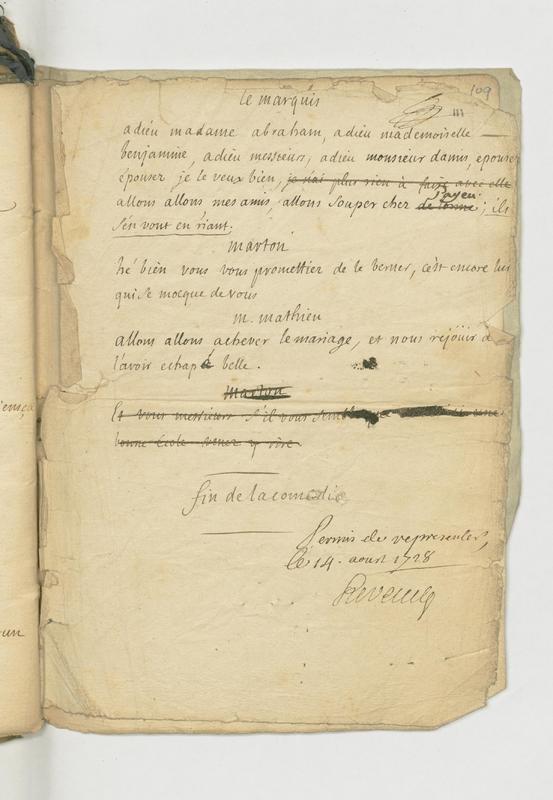 109
le marquis
adieu madame abraham, adieu mademoiselle
benjamine, adieu messieurs, adieu monsieur damis, epousez
épousez je le veux bien, je n'ai plus rien à faire avec elle
payen
allons allons mes amis allons souper chez de lorme; ils
s'en vont en riant.
marton
hé bien vous vous promettiez de le berner, c'est encore lui
qui se mocque de vous
m. mathieu
allons allons achever le mariage, et nous rejoüir de
l'avoir echapé belle.
marton
Et vous messieurs s'il vous semble une
bonne école venez y rire.
fin de la comedie
Permis de representer,
le 14. aoust 1728